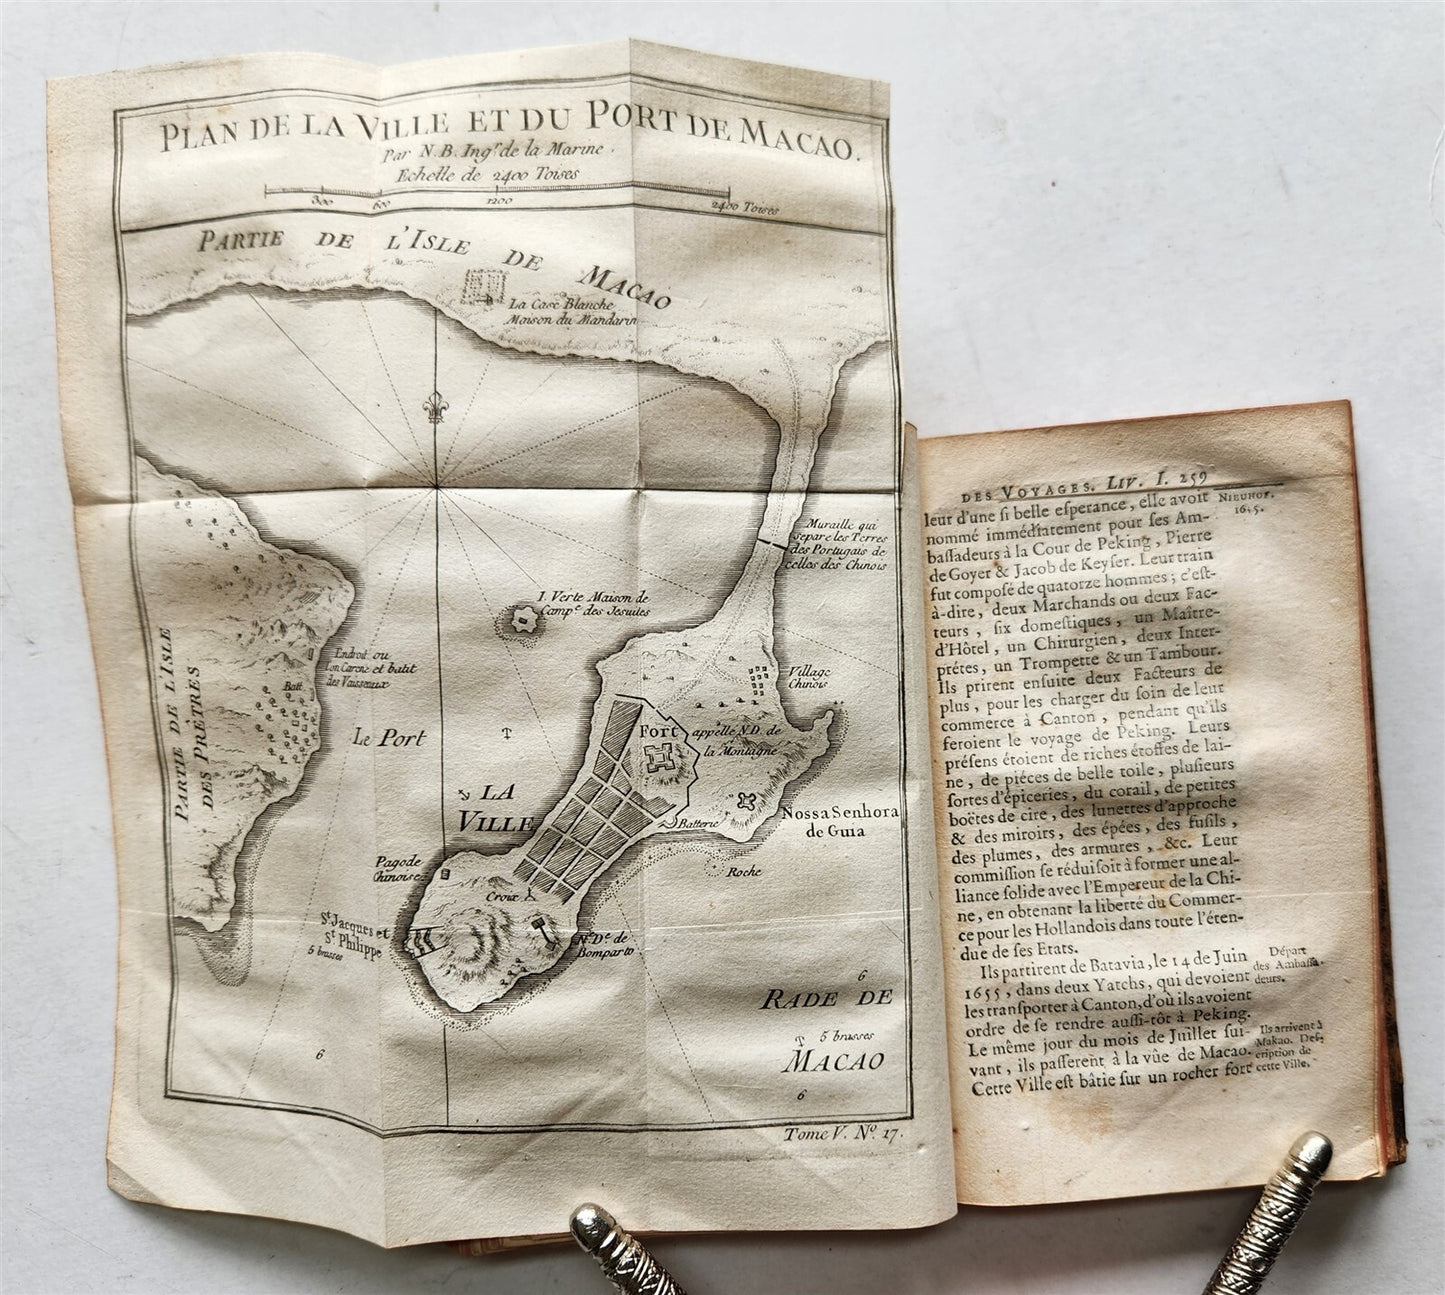 PLAN DE LA VILLE ET DU PORT DE MACAO.
Par N. B. Ingr. de la Marine.
Echelle de 2400 Toises
300 600 1200 2400 Toises
PARTIE DE L'ISLE DE MACAO
La Case Blanche
Maison du Mandarin
Muraille qui
separe les Terres
des Portugais de
celles des Chinois
I. Verte Maison de
Campe. des Jesuites
PARTIE DE L'ISLE
DES PRÊTRES
Endroit ou
l'on Carene et batit
des Vaisseaux
Batt.
Village
Chinois
Le Port
Fort appellé N.D. de
la Montagne
LA
VILLE
Nossa Senhora
de Guia
Batterie
Roche
Pagode
Chinoise
Croix
St. Jacques et
St. Philippe
5 brasses
N. De. de
Bomparto
6
RADE DE
5 brasses
MACAO
6
6
Tome V. No. 17.
DES VOYAGES. LIV. I. 259
leur d'une si belle esperance, elle avoit
nommé immédiatement pour ses Am-
bassadeurs à la Cour de Peking, Pierre
de Goyer & Jacob de Keyser. Leur train
fut composé de quatorze hommes; c'est-
à-dire, deux Marchands ou deux Fac-
teurs, six domestiques, un Maître-
d'Hôtel, un Chirurgien, deux Inter-
prétes, un Trompette & un Tambour.
Ils prirent ensuite deux Facteurs de
plus, pour les charger du soin de leur
commerce à Canton, pendant qu'ils
feroient le voyage de Peking. Leurs
présens étoient de riches étoffes de lai-
ne, de piéces de belle toile, plusieurs
sortes d'épiceries, du corail, de petites
boëtes de cire, des lunettes d'approche
& des miroirs, des épées, des fusils,
des plumes, des armures, &c. Leur
commission se réduisoit à former une al-
liance solide avec l'Empereur de la Chi-
ne, en obtenant la liberté du Commer-
ce pour les Hollandois dans toute l'éten-
due de ses Etats.
Ils partirent de Batavia, le 14 de Juin
1655, dans deux Yatchs, qui devoient
les transporter à Canton, d'où ils avoient
ordre de se rendre aussi-tôt à Peking.
Le même jour du mois de Juillet sui-
vant, ils passerent à la vûe de Macao.
Cette Ville est bâtie sur un rocher fort
NIEUHOF.
1655.
Départ
des Ambassa-
deurs.
Ils arrivent à
Makao. Des-
cription de
cette Ville.